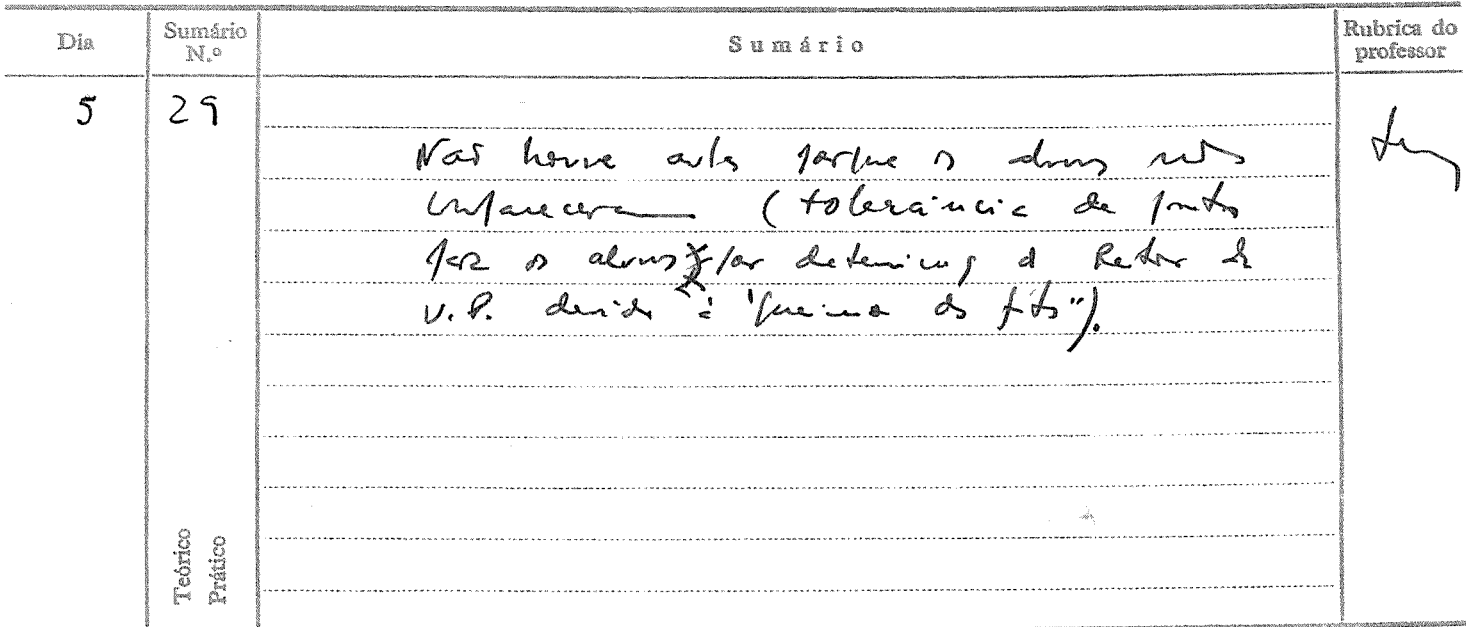 Dia Sumário N.º Sumário Rubrica do professor
5 29
Não houve aula porque os alunos não
compareceram (tolerância de ponto
para os alunos por determinação do Reitor da
U.P. devido à "Queima das fitas").
Teórico
Prático